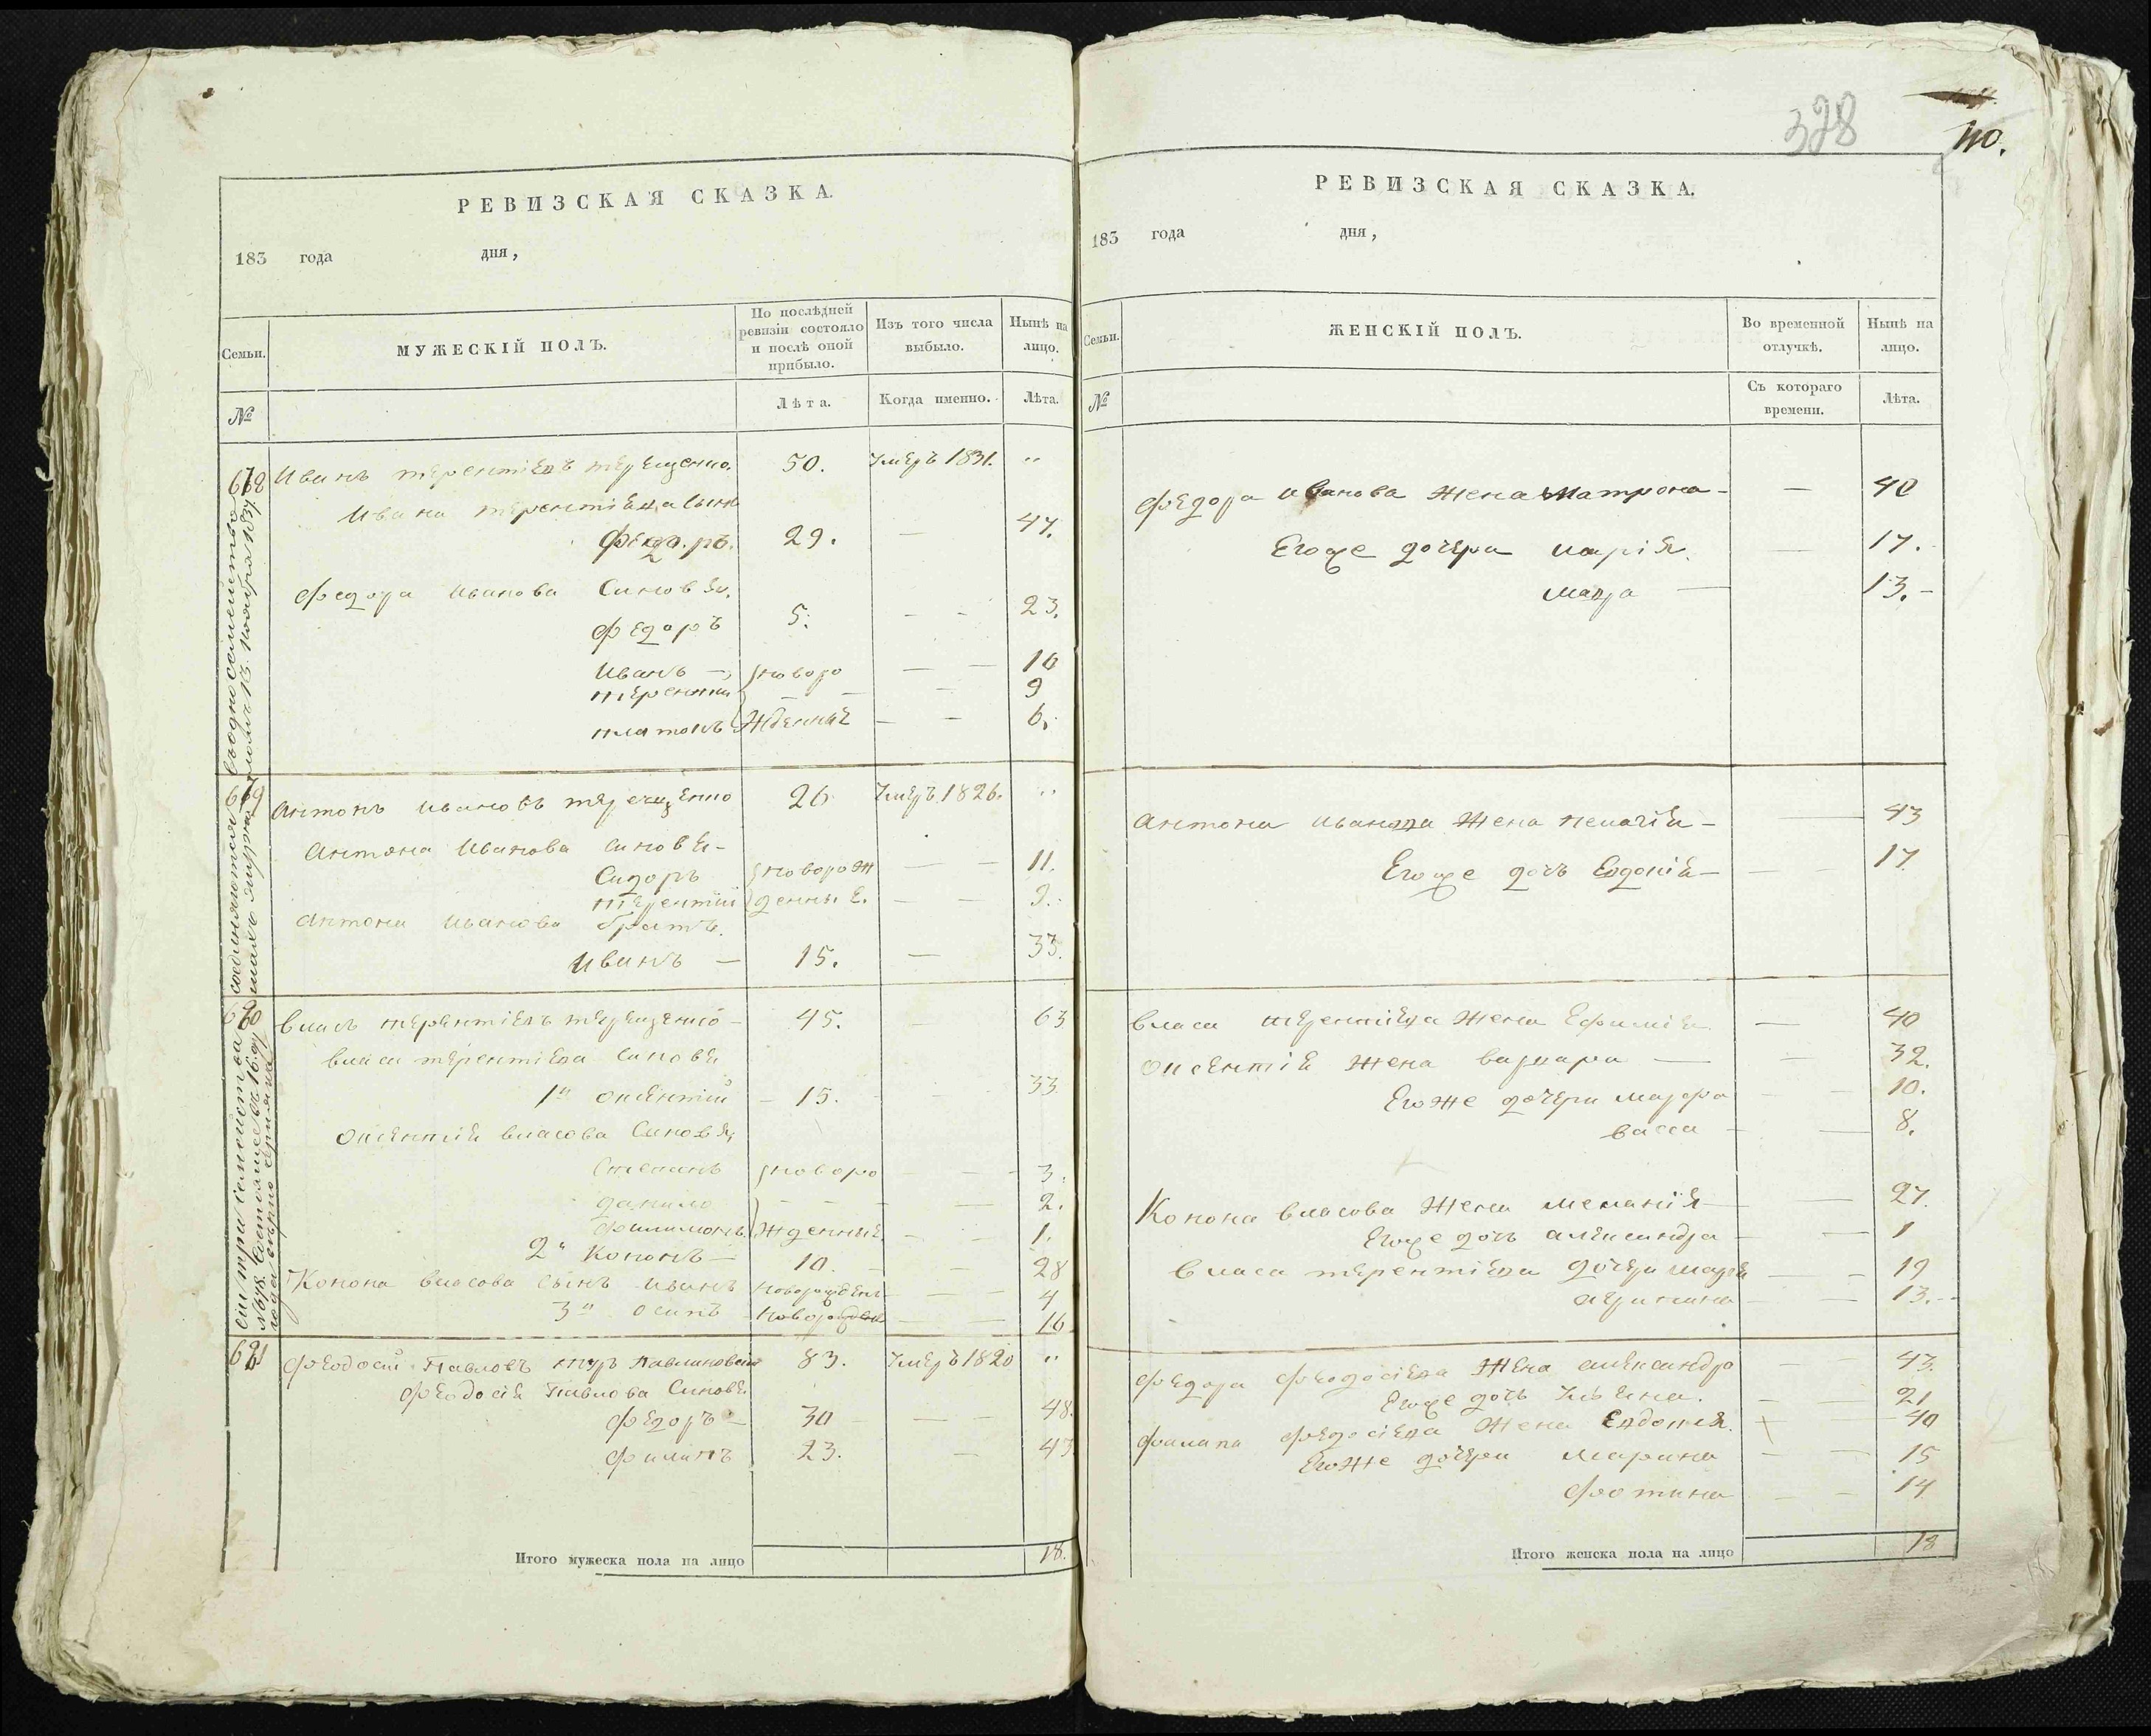 328
110.
РЕВИЗСКАЯ СКАЗКА.
183 года дня,
Семьи. МУЖЕСКІЙ ПОЛЪ. По послѣдней ревизіи состояло и послѣ оной прибыло. Изъ того числа выбыло. Нынѣ на лицо.
№ Лѣта. Когда именно. Лѣта.
Иванъ терентіевъ терещенко. 50. Умеръ 1831. „
Ивана терентіева сынъ
Федоръ. 29. — 47.
Федора Иванова Синовя,
Федоръ 5. - - 23.
Иванъ — новоро — — 10
терентии — — — 9
платонъ жденние — — 6.
669 Антонъ Ивановъ терещенко 26 Умеръ 1826. „
Антона Иванова синовя —
Сидоръ новорож — — 11.
терентіи денние. — — 9.
Антона Иванова братъ.
Иванъ — 15. — 33.
670 Власъ терентіевъ терещенко — 45. — 63
Власа терентіева синовя
1й Оксентіи — 15. - - 33
Оксентія власова Синовя,
Степанъ новоро — — 3.
данило — — — 2.
Филимонъ. жденние — — 1.
2й Кононъ — 10. — — 28
Конона власова сынъ Иванъ новорожденъ — — 4
3й осипъ новорожден — — 16
621 Феодосій Павловъ 83. Умеръ 1820 „
Феодосія Павлова Синовя
Федоръ — 30 — — 48.
Филипъ 23. — 43
Итого мужеска пола на лицо 18.
РЕВИЗСКАЯ СКАЗКА.
183 года дня,
Семьи. ЖЕНСКІЙ ПОЛЪ. Во временной отлучкѣ. Нынѣ на лицо.
№ Съ котораго времени. Лѣта.
Федора Иванова Жена Матрона — — 40
Егоже дочери Марія. — 17.
Мавра — — 13. —
Антона Иванова Жена пелагія — — 43
Егоже дочь Евдокія — — — 17.
Власа терентіева Жена Ефимія — 40
Оксентія Жена варвара — — 32.
Егоже дочери Марфа — 10.
васса — — 8.
Конона власова Жена меланія — — 27.
Егоже дочь александра — — 1
Власа терентіева дочери марія — — 19
13. —
Федора Феодосіева Жена александра — — 43.
Егоже дочь Ульяна. — — 21
Филипа Федосіева Жена Евдокия. — 40
Егоже дочери Марина — — 15
Фотина — — 14
Итого женска пола на лицо 18